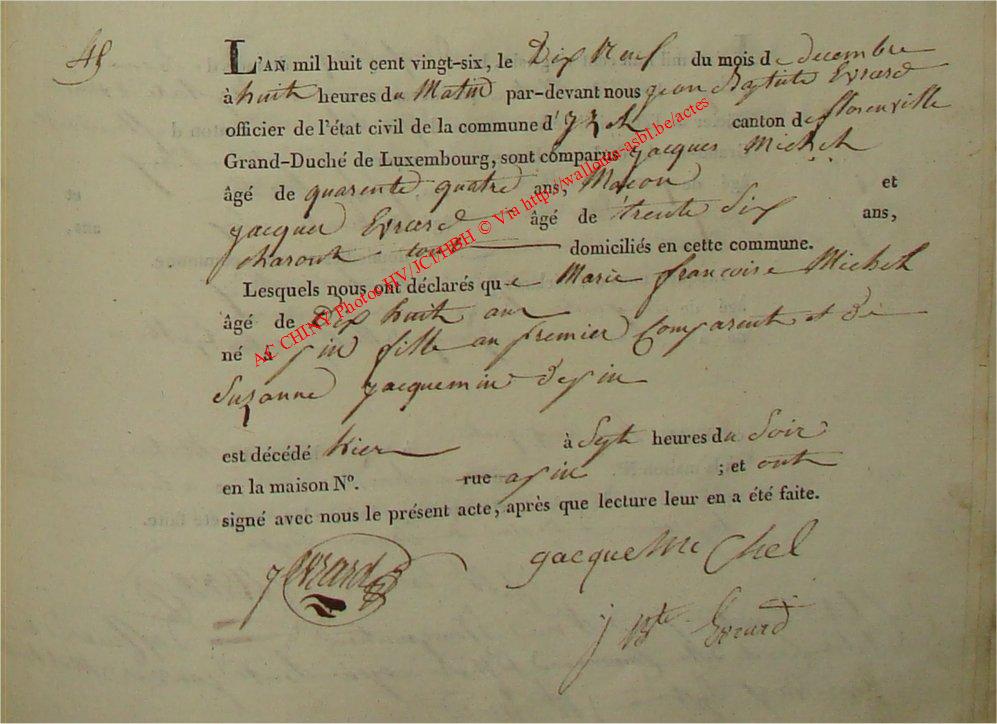 48
L'AN mil huit cent vingt-six, le Dix Neuf du mois de decembre
à huit heures du Matin par-devant nous jean Baptiste Evrard
officier de l'état civil de la commune d'yzel canton de florenville
Grand-Duché de Luxembourg, sont comparus jacques Michel
âgé de quarente quatre ans, Maçon et
jacque Evrard âgé de trente Six ans,
charont tous domiciliés en cette commune.
Lesquels nous ont déclarés que Marie françoise Michel
âgé de Dix huit ans
né à pin fille au premier Comparent et de
Suzanne jacquemin de pin
est décédé hier à Sept heures du Soir
en la maison N°. rue a pin ; et ont
signé avec nous le présent acte, après que lecture leur en a été faite.
jEvrard jacque Michel
j Bte Evrard
AC CHINY Photos HV/JCI/HBH © Via http://wallonia-asbl.be/actes